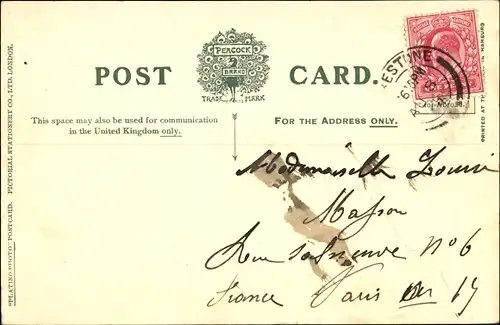 PEACOCK
BRAND
TRADE MARK
POST CARD.
This space may also be used for communication
in the United Kingdom only.
FOR THE ADDRESS ONLY.
"PLATINO-PHOTO" POSTCARD. PICTORIAL STATIONERY CO., LTD., LONDON.
PRINTED AT TH IN HAMBURG
ESTONE
Mademoiselle Louise
Masson
Rue No 6
France Paris 17